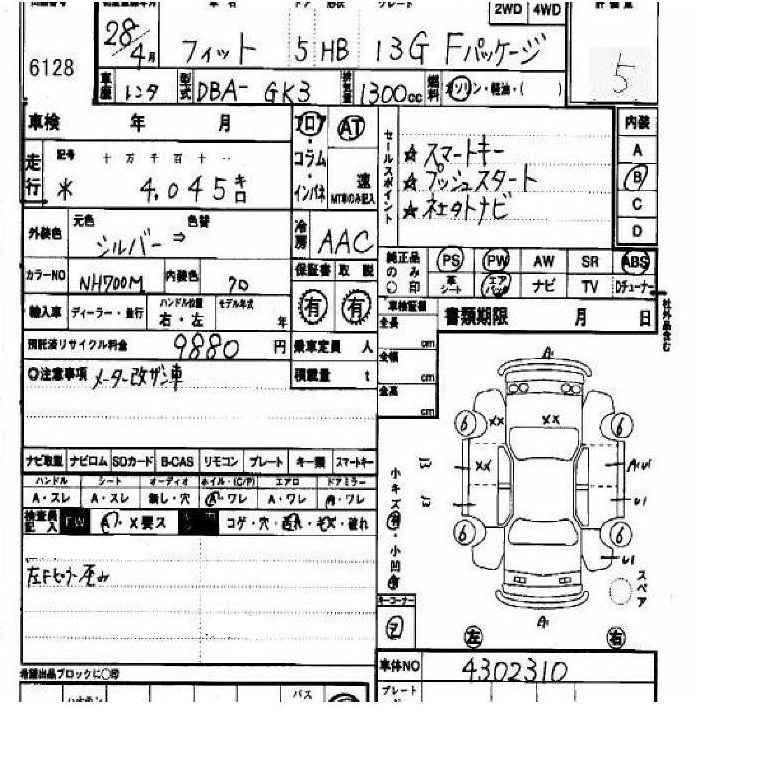 2WD 4WD
評価点
6128
28/4月 フィット 5 HB 13G Fパッケージ
5
車歴 レンタ 型式 DBA- GK3 排気量 1300cc 燃料 ガソリン・軽油・( )
車検 年 月
フロア・コラム・インパネ
AT 速 MT車のみ記入
セールスポイント
☆スマートキー
☆プッシュスタート
☆ネエタトナビ
内装
A
B
C
D
走行 記号 十万千百十
* 4.045キロ
外装色 元色 シルバー ⇒ 色替
冷房 AAC
カラーNO NH700M 内装色 70
保証書 取説
有 有
純正品のみ○印
PS PW AW SR ABS
革シート エアバック ナビ TV Dチューナー
社外品含む
輸入車 ディーラー・並行 ハンドル位置 右・左 モデル年式 年
車検証欄
全長 cm
全幅 cm
全高 cm
書類期限 月 日
預託済リサイクル料金 9880 円
乗車定員 人
積載量 t
◎注意事項 メーター改ザン車
ナビ取説 ナビロム SDカード B-CAS リモコン プレート キー類 スマートキー
ハンドル シート オーディオ ホイル・(C/P) エアロ ドアミラー
A・スレ A・スレ 無し・穴 A・ワレ A・ワレ A・ワレ
検査員記入 FW A・X要ス コゲ・穴・汚れ・キズ・破れ
小キズ有・小凹有
A
6 XX XX 6
13 XX A1U1
13 U1
6 6
U1
A
スペア
左 右
キーコーナー
2
車体NO 4302310
プレート
希望出品ブロックに○印
バス